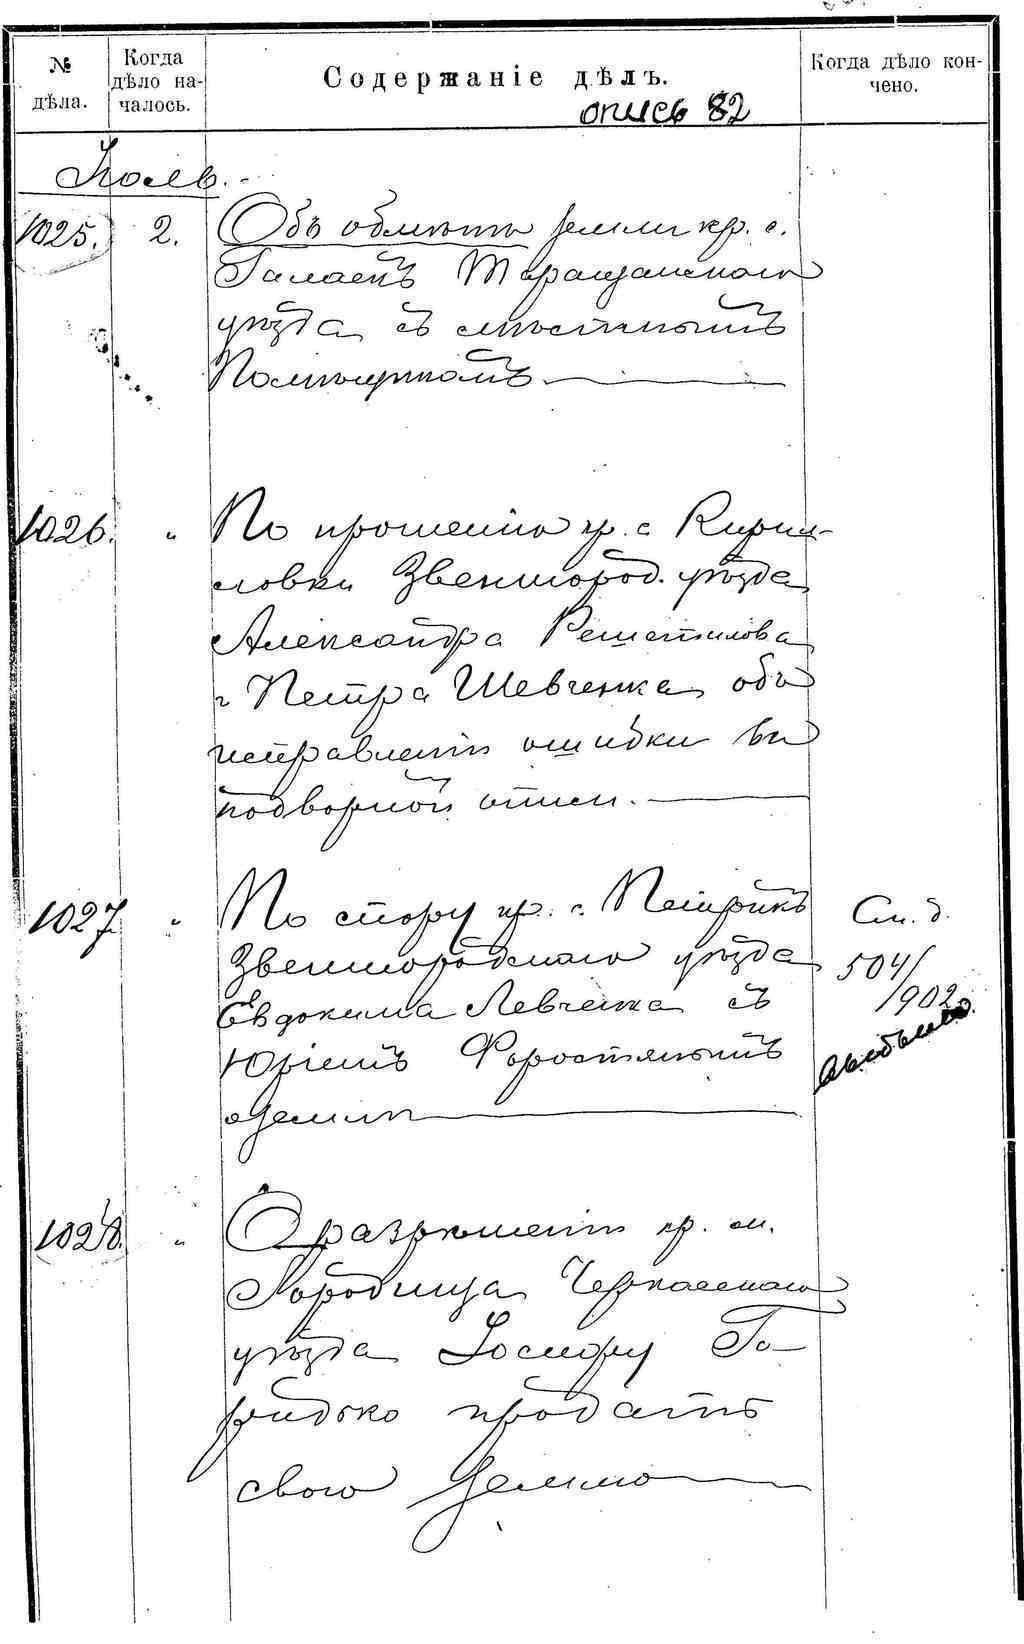 № дѣла.
Когда дѣло началось.
Содержаніе дѣлъ.
Когда дѣло кончено.
опись 82
Іюль.
1025. 2. Объ обмѣнѣ земли кр. с.
Галаекъ Таращанскаго
уѣзда съ мѣстнымъ
Помѣщикомъ
1026. " По прошенію кр. с Кирил-
ловки Звенигород. уѣзда
Александра Решетилова
и Петра Шевченка объ
исправленіи ошибки въ
подворной описи.
1027 " По спору кр. с. Петрикъ
Звенигородскаго уѣзда
Евдокима Левченка съ
Юріемъ Форостянымъ
о землѣ
См. д.
504/
/902
выбыло
1028. " О разрѣшеніи кр. м.
Городища Черкасскаго
уѣзда Іосифу Га-
продать
свою землю